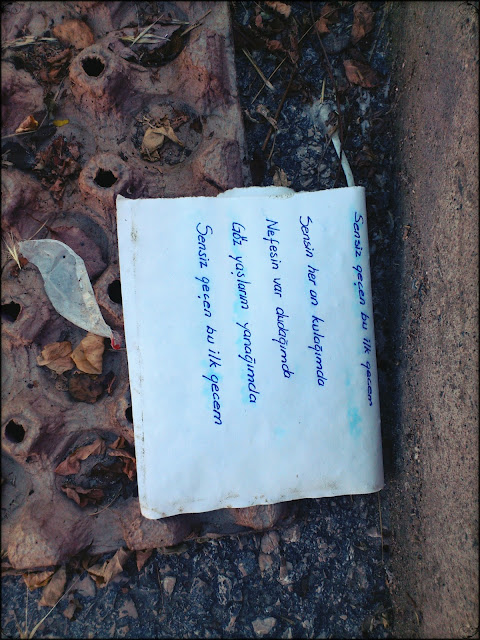 Sensiz geçen bu ilk gecem
Sensin her an kulağımda
Nefesin var dudağımda
Göz yaşlarım yanağımda
Sensiz geçen bu ilk gecem